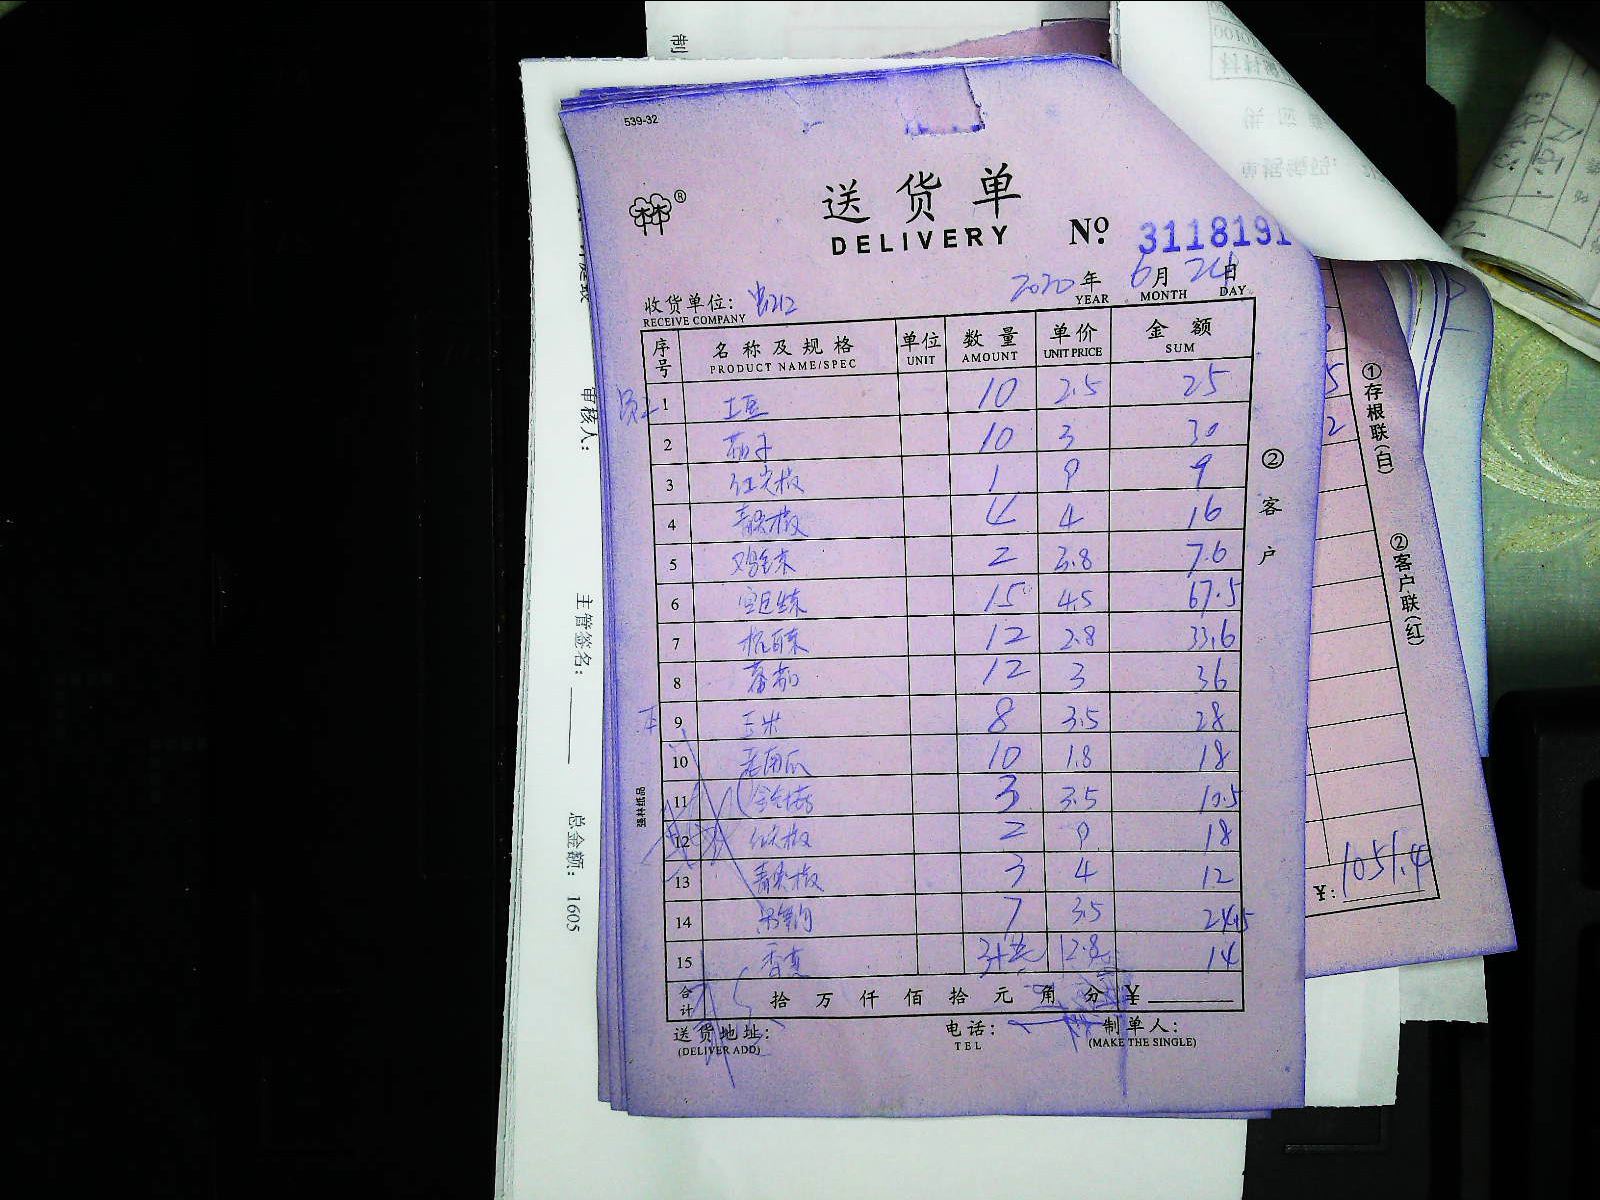 制
539-32
林林®
送货单
DELIVERY No. 3118191
2020年 6月 24日
YEAR MONTH DAY
收货单位:
RECEIVE COMPANY
序号 名称及规格 单位 数量 单价 金额
PRODUCT NAME/SPEC UNIT AMOUNT UNIT PRICE SUM
1 土豆 10 2.5 25
2 茄子 10 3 30
3 红尖椒 1 9 9
4 青尖椒 4 4 16
5 2 3.8 7.6
6 15 4.5 67.5
7 12 2.8 33.6
8 蕃茄 12 3 36
9 玉米 8 3.5 28
10 老南瓜 10 1.8 18
11 3 3.5 10.5
12 红尖椒 2 9 18
13 青尖椒 3 4 12
14 7 3.5 24.5
15 12.8 14
合计 拾 万 仟 佰 拾 元 角 分 ¥
送货地址: 电话: 制单人:
(DELIVER ADD) TEL (MAKE THE SINGLE)
② 客户
强林纸品
审核人:
主管签名:
总金额: 1605
①存根联(白)
②客户联(红)
¥: 1051.4